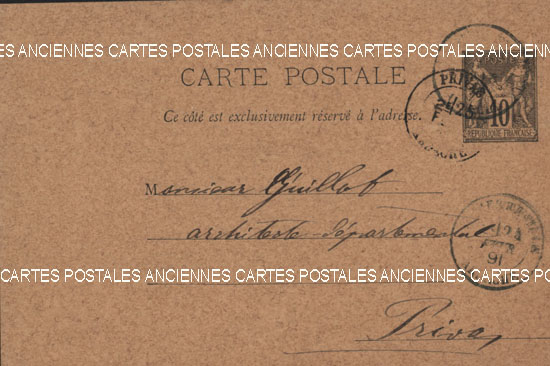 ES ANCIENNES CARTES POSTALES ANCIENNES CARTES POSTALES ANCIENNES CARTES
CARTE POSTALE
Ce côté est exclusivement réservé à l'adresse.
PRIVAS
10
REPUBLIQUE FRANÇAISE
Monsieur Guillot
architecte départemental
91
CARTES POSTALES ANCIENNES CARTES POSTALES ANCIENNES CARTES POSTALES
Privas